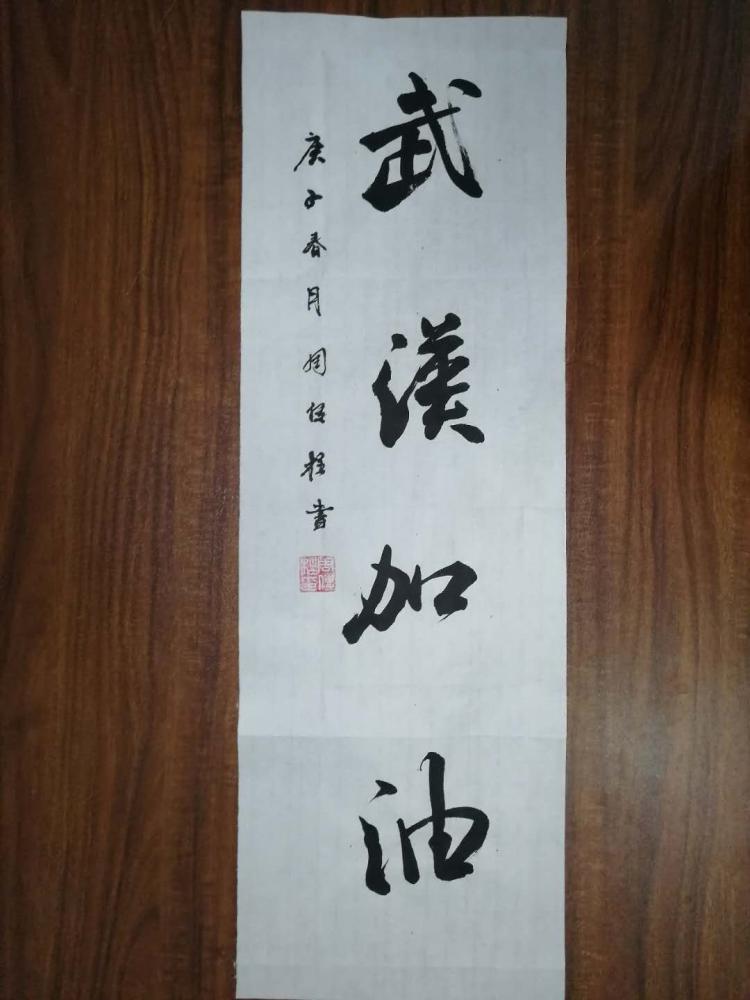 武漢加油
庚子春月周
書